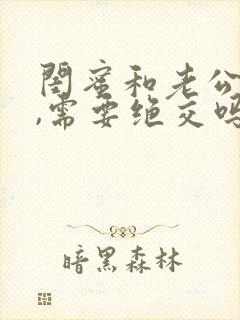 閨蜜和老公
,需要绝交吗
暗黑森林